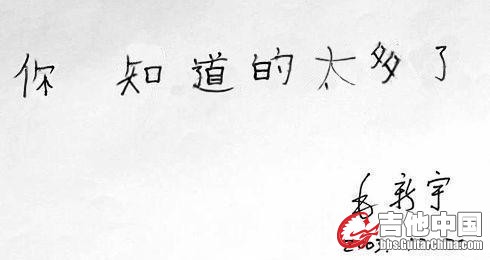 你 知道的太多了
毛新宇
吉他中国
bbs.GuitarChina.com